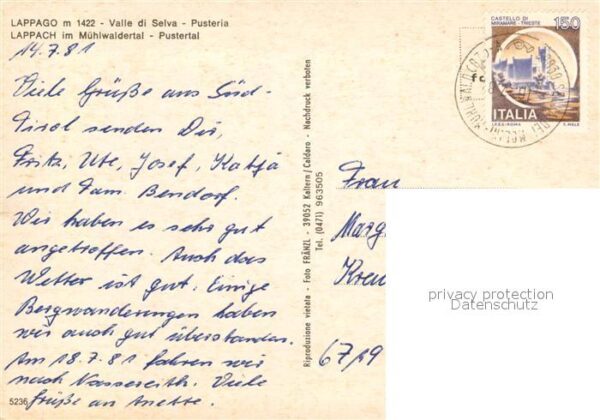 LAPPAGO m 1422 - Valle di Selva - Pusteria
LAPPACH im Mühlwaldertal - Pustertal
14.7.81
Viele Grüße aus Süd-
Tirol senden Dir,
Fritz, Ute, Josef, Katja
und Fam. Bendorf.
Wir haben es sehr gut
angetroffen. Auch das
Wetter ist gut. Einige
Bergwanderungen haben
wir auch gut überstanden.
Am 18.7.81 fahren wir
nach Nassereith. Viele
Grüße an Anette.
5236
Riproduzione vietata - Foto FRÄNZL - 39052 Kaltern/Caldaro - Nachdruck verboten
Tel. (0471) 963505
CASTELLO DI
MIRAMARE - TRIESTE
150
ITALIA
Frau
Marg
Kreu
6719
privacy protection
Datenschutz